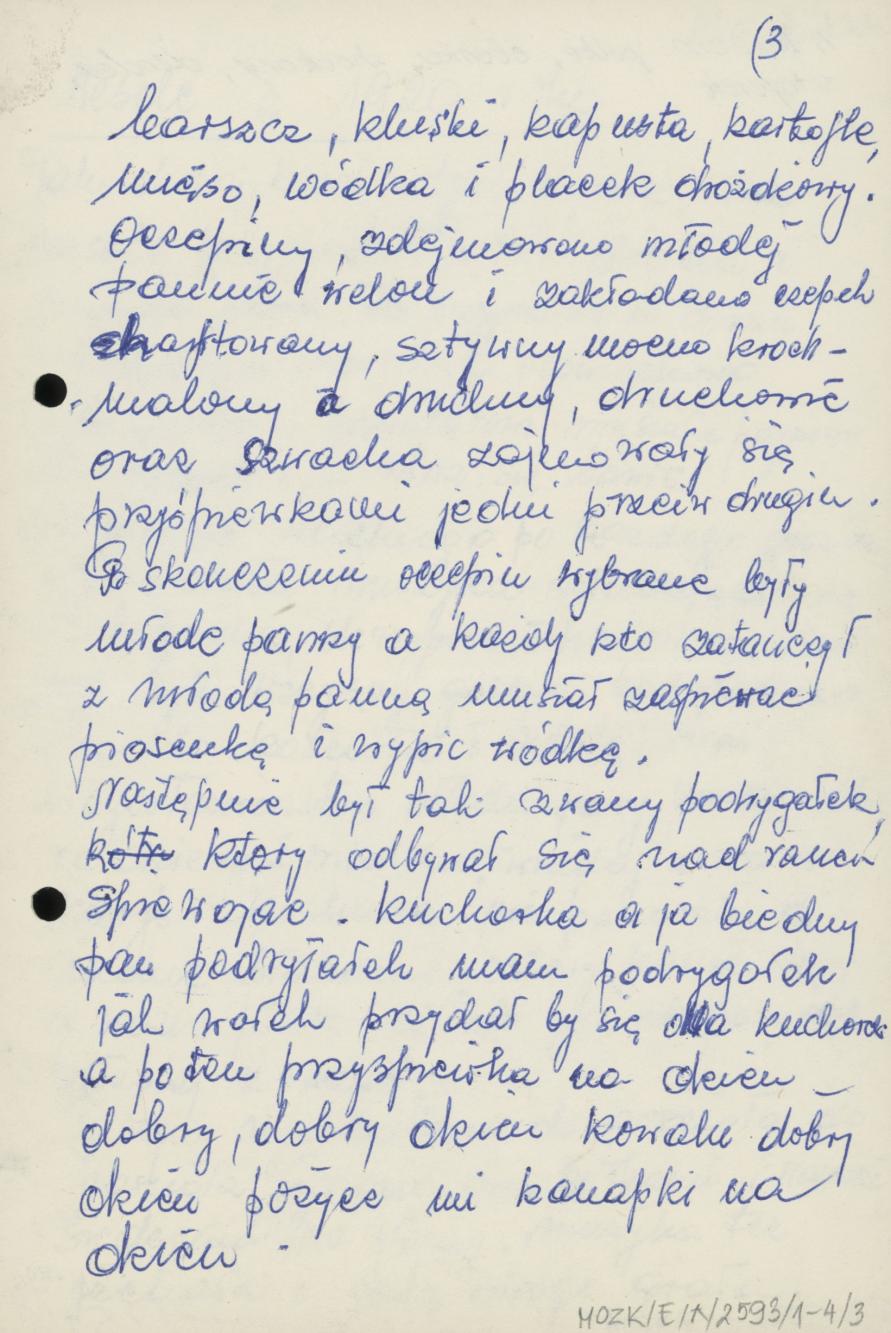 (3
barszcz, kluski, kapusta, kartofle,
mięso, wódka i placek drożdżowy.
Oczepiny, zdejmowano młodej
pannie welon i zakładano czepek
haftowany, sztywny mocno kroch-
malony a drużny, druchowie
oraz szwacha zajmowały się
przyśpiewkami jedni przeciw drugim.
Po skończeniu oczepin wybrane były
młode panny a każdy kto zatańczył
z młodą panną musiał zaśpiewać
piosenkę i wypić wódkę.
Następnie był tak zwany podrygałek,
kótry który odbywał się nad ranem
Śpiewając. Kucharka a ja biedny
pan podrygałek mam podrygałek
jak wałek przydał by się dla kucharki
a potem przyspiewka na dzień
dobry, dobry dzień kowalu dobry
dzień pożycz mi kanapki na
dzień.
MOZK/E/A/2593/1-4/3